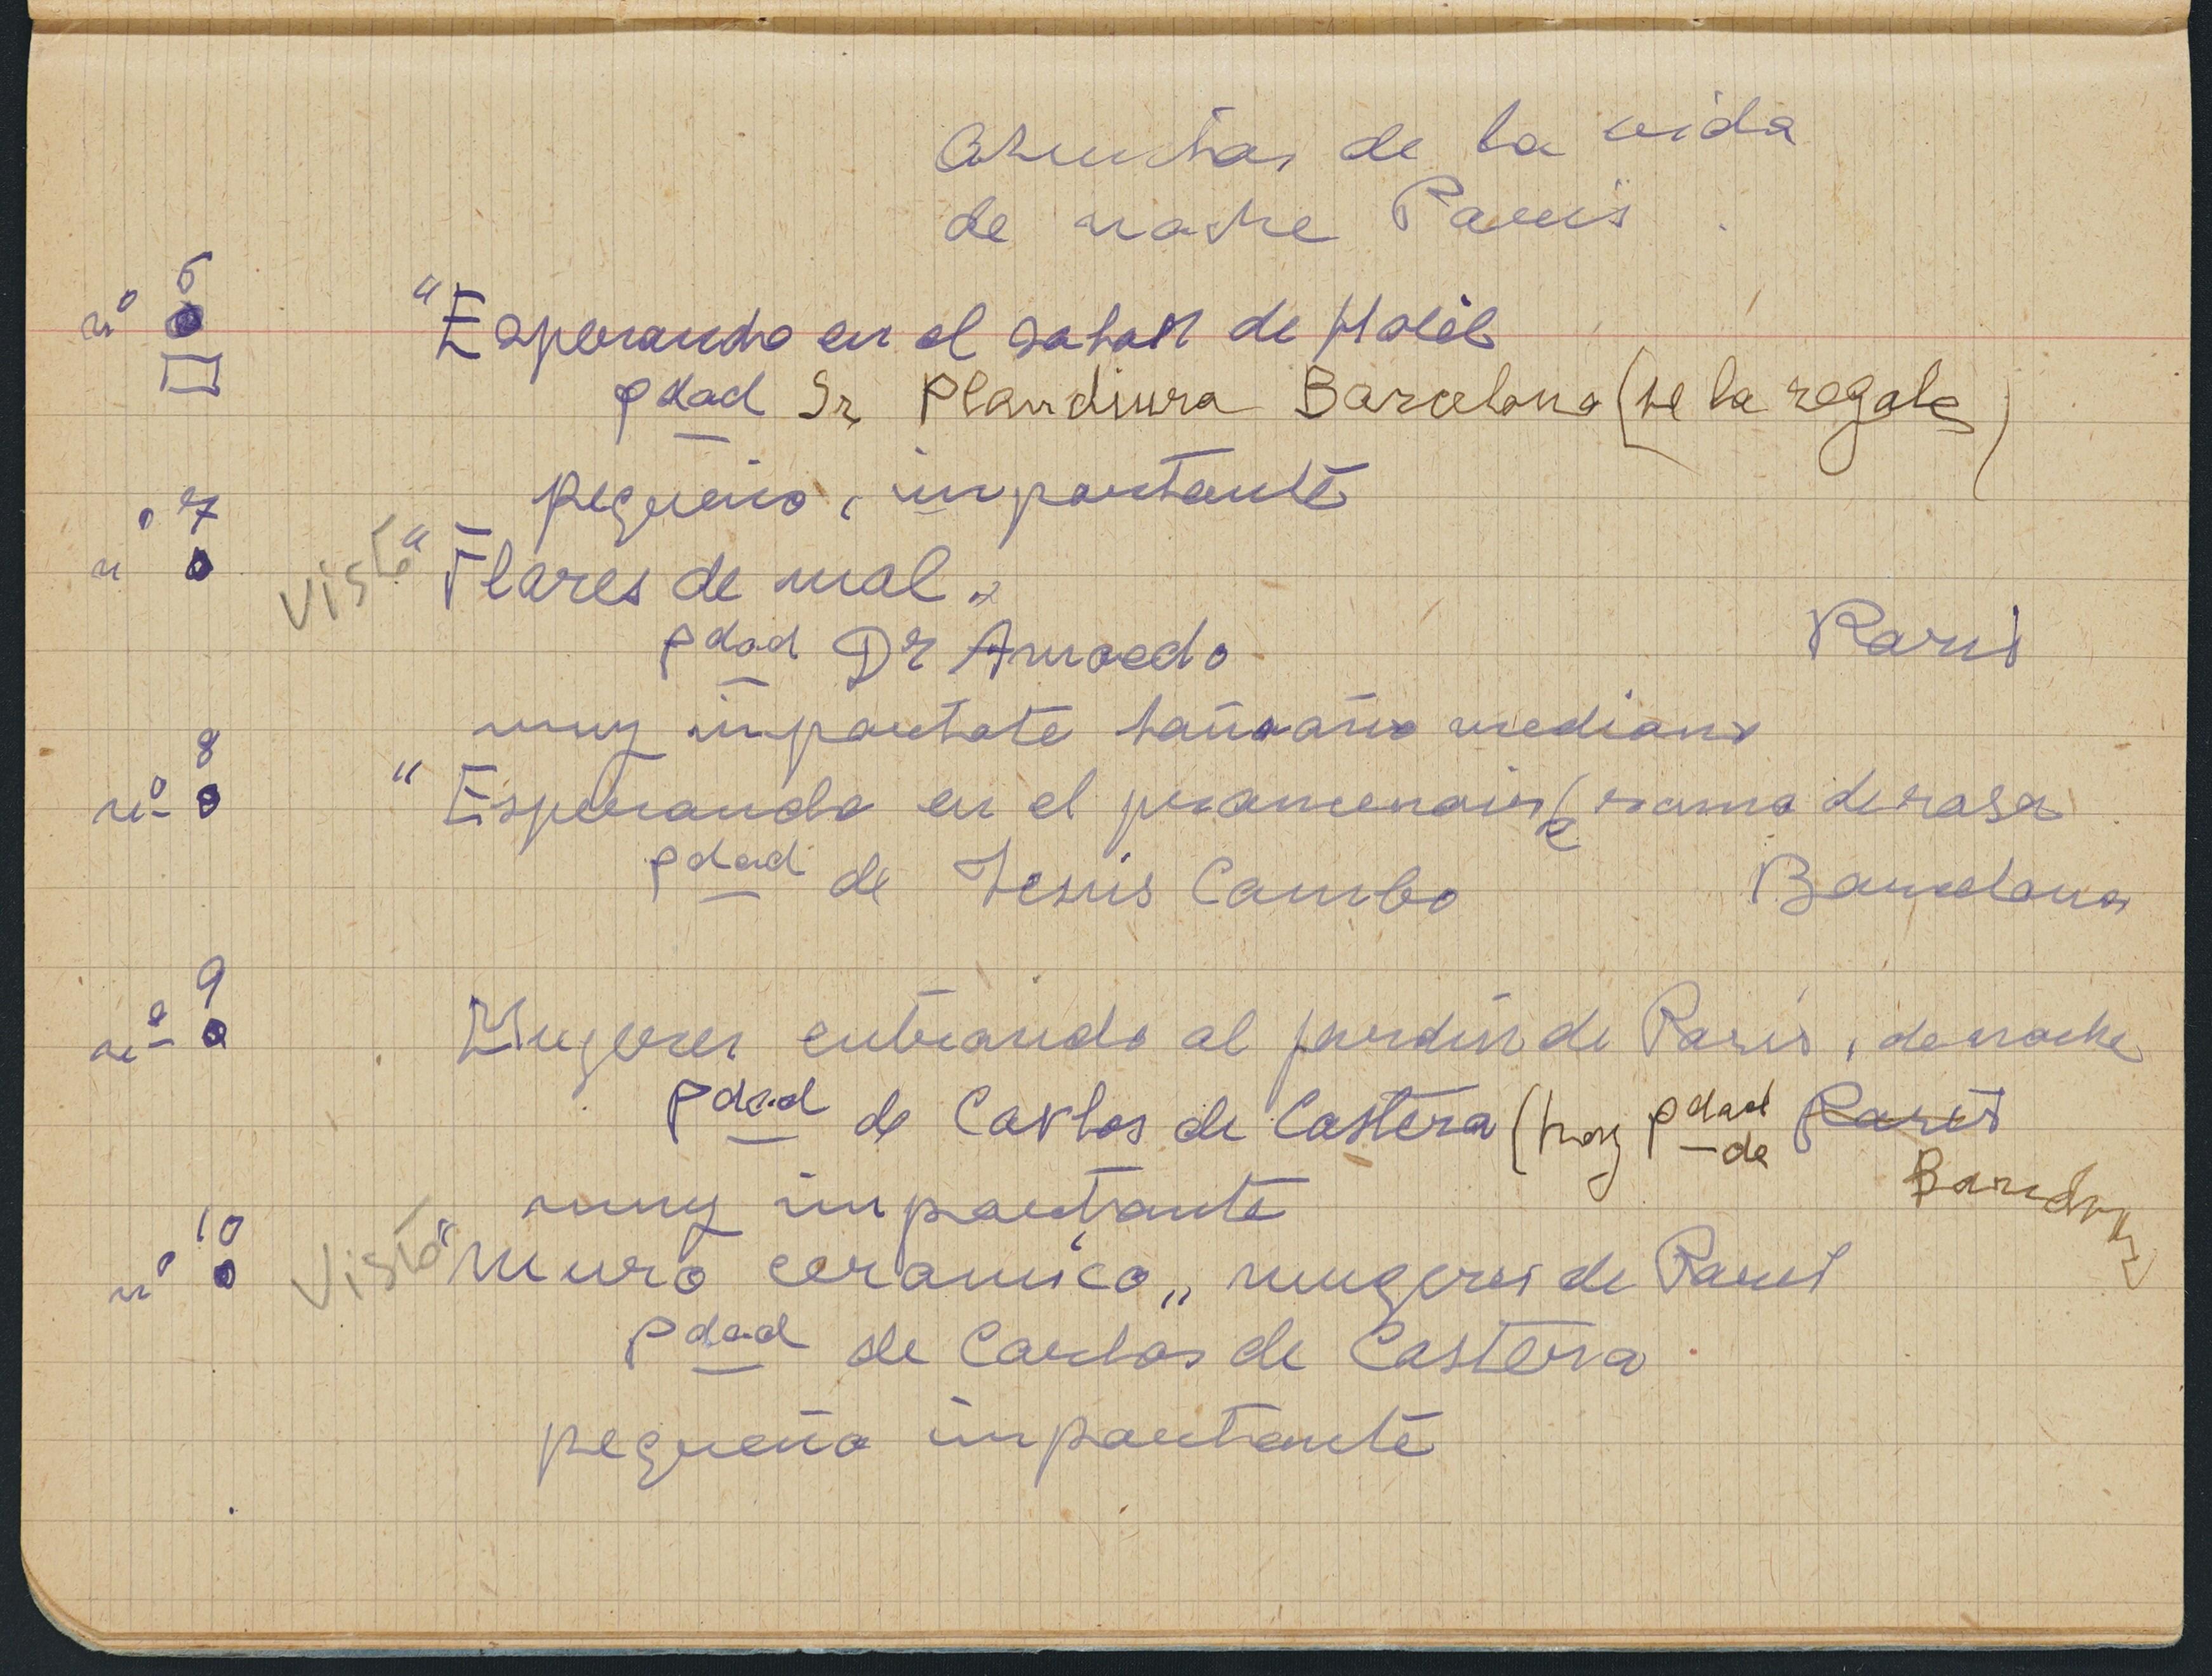 Asuntos de la vida
de noche Paris
nº 6 "Esperando en el salon de Hotel
pdad Sr Plandiura Barcelona (se la regale)
pequeño, importante
nº 7 Visto "Flores de mal"
pdad Dr Amoedo Paris
muy importate tamaño mediano
nº 8 "Esperando en el promenoir ( ramo de rosas
pdad de Jesus Cambo Barcelona
nº 9 Mugeres entrando al jardin de Paris, de noche
pdad de Carlos de Castera (hoy pdad de Paris
Barcelona
muy importante
nº 10 Visto "Muro ceramico" mugeres de Paris
pdad de Carlos de Castera
pequeño importante